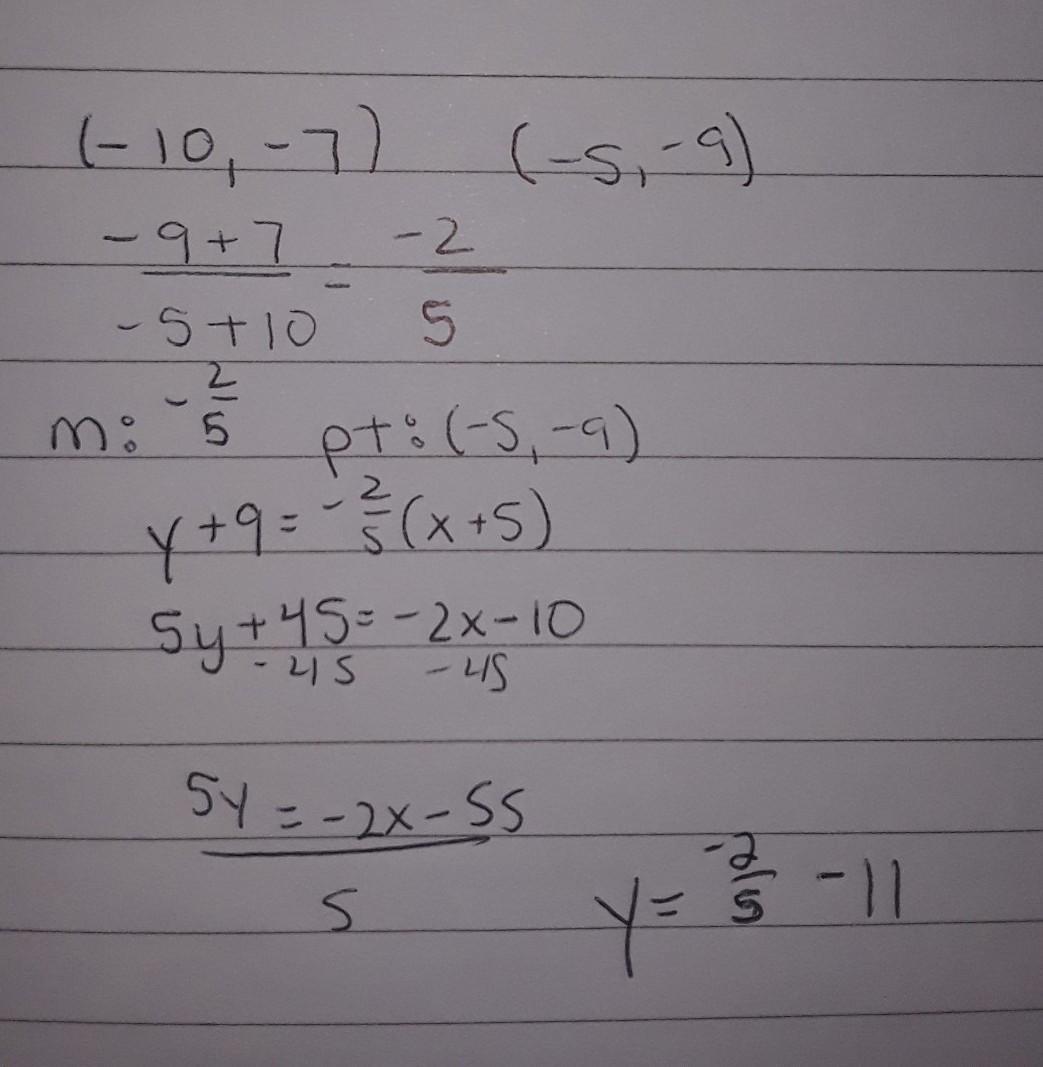 (-10, -7) (-5, -9)
-9+7 / -5+10 = -2 / 5
m: -2/5 pt: (-5, -9)
y+9 = -2/5(x+5)
5y+45 = -2x-10
-45 -45
5y = -2x-55
5
y = -2/5 -11